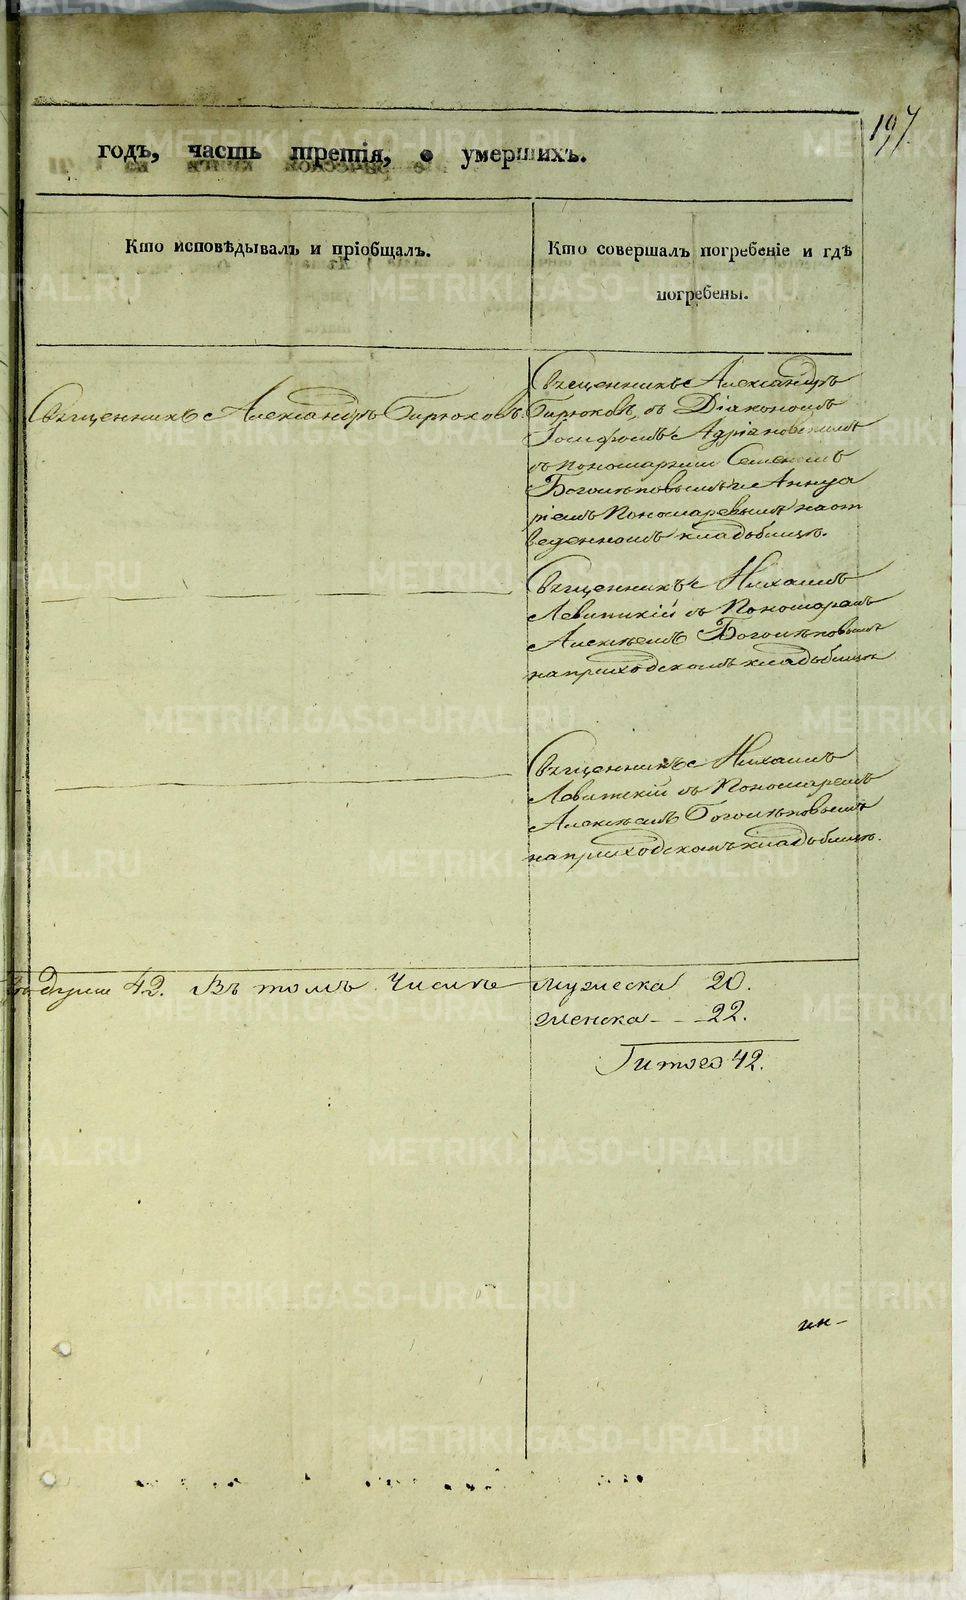 197
годъ, часть третія, о умершихъ.
Кто исповѣдывалъ и пріобщалъ.
Кто совершалъ погребеніе и гдѣ
погребены.
Священникъ Александръ Бирюковъ.
Священникъ Александръ
Бирюковъ, съ Діакономъ
Іосифомъ Адріановскимъ
съ пономарями Семеномъ
Боголѣповымъ и Аннуа
ріемъ Пономаревымъ на от
веденномъ кладбищѣ.
Священникъ Михаилъ
Левитскій съ Пономаремъ
Алексѣемъ Боголѣповымъ
на приходскомъ кладбищѣ
Священникъ Михаилъ
Левитскій съ Пономаремъ
Алексѣемъ Боголѣповымъ
на приходскомъ кладбищѣ.
душъ 42. Въ томъ Числѣ
мужеска 20.
женска - - 22.
итого 42.
METRIKI.GASO-URAL.RU